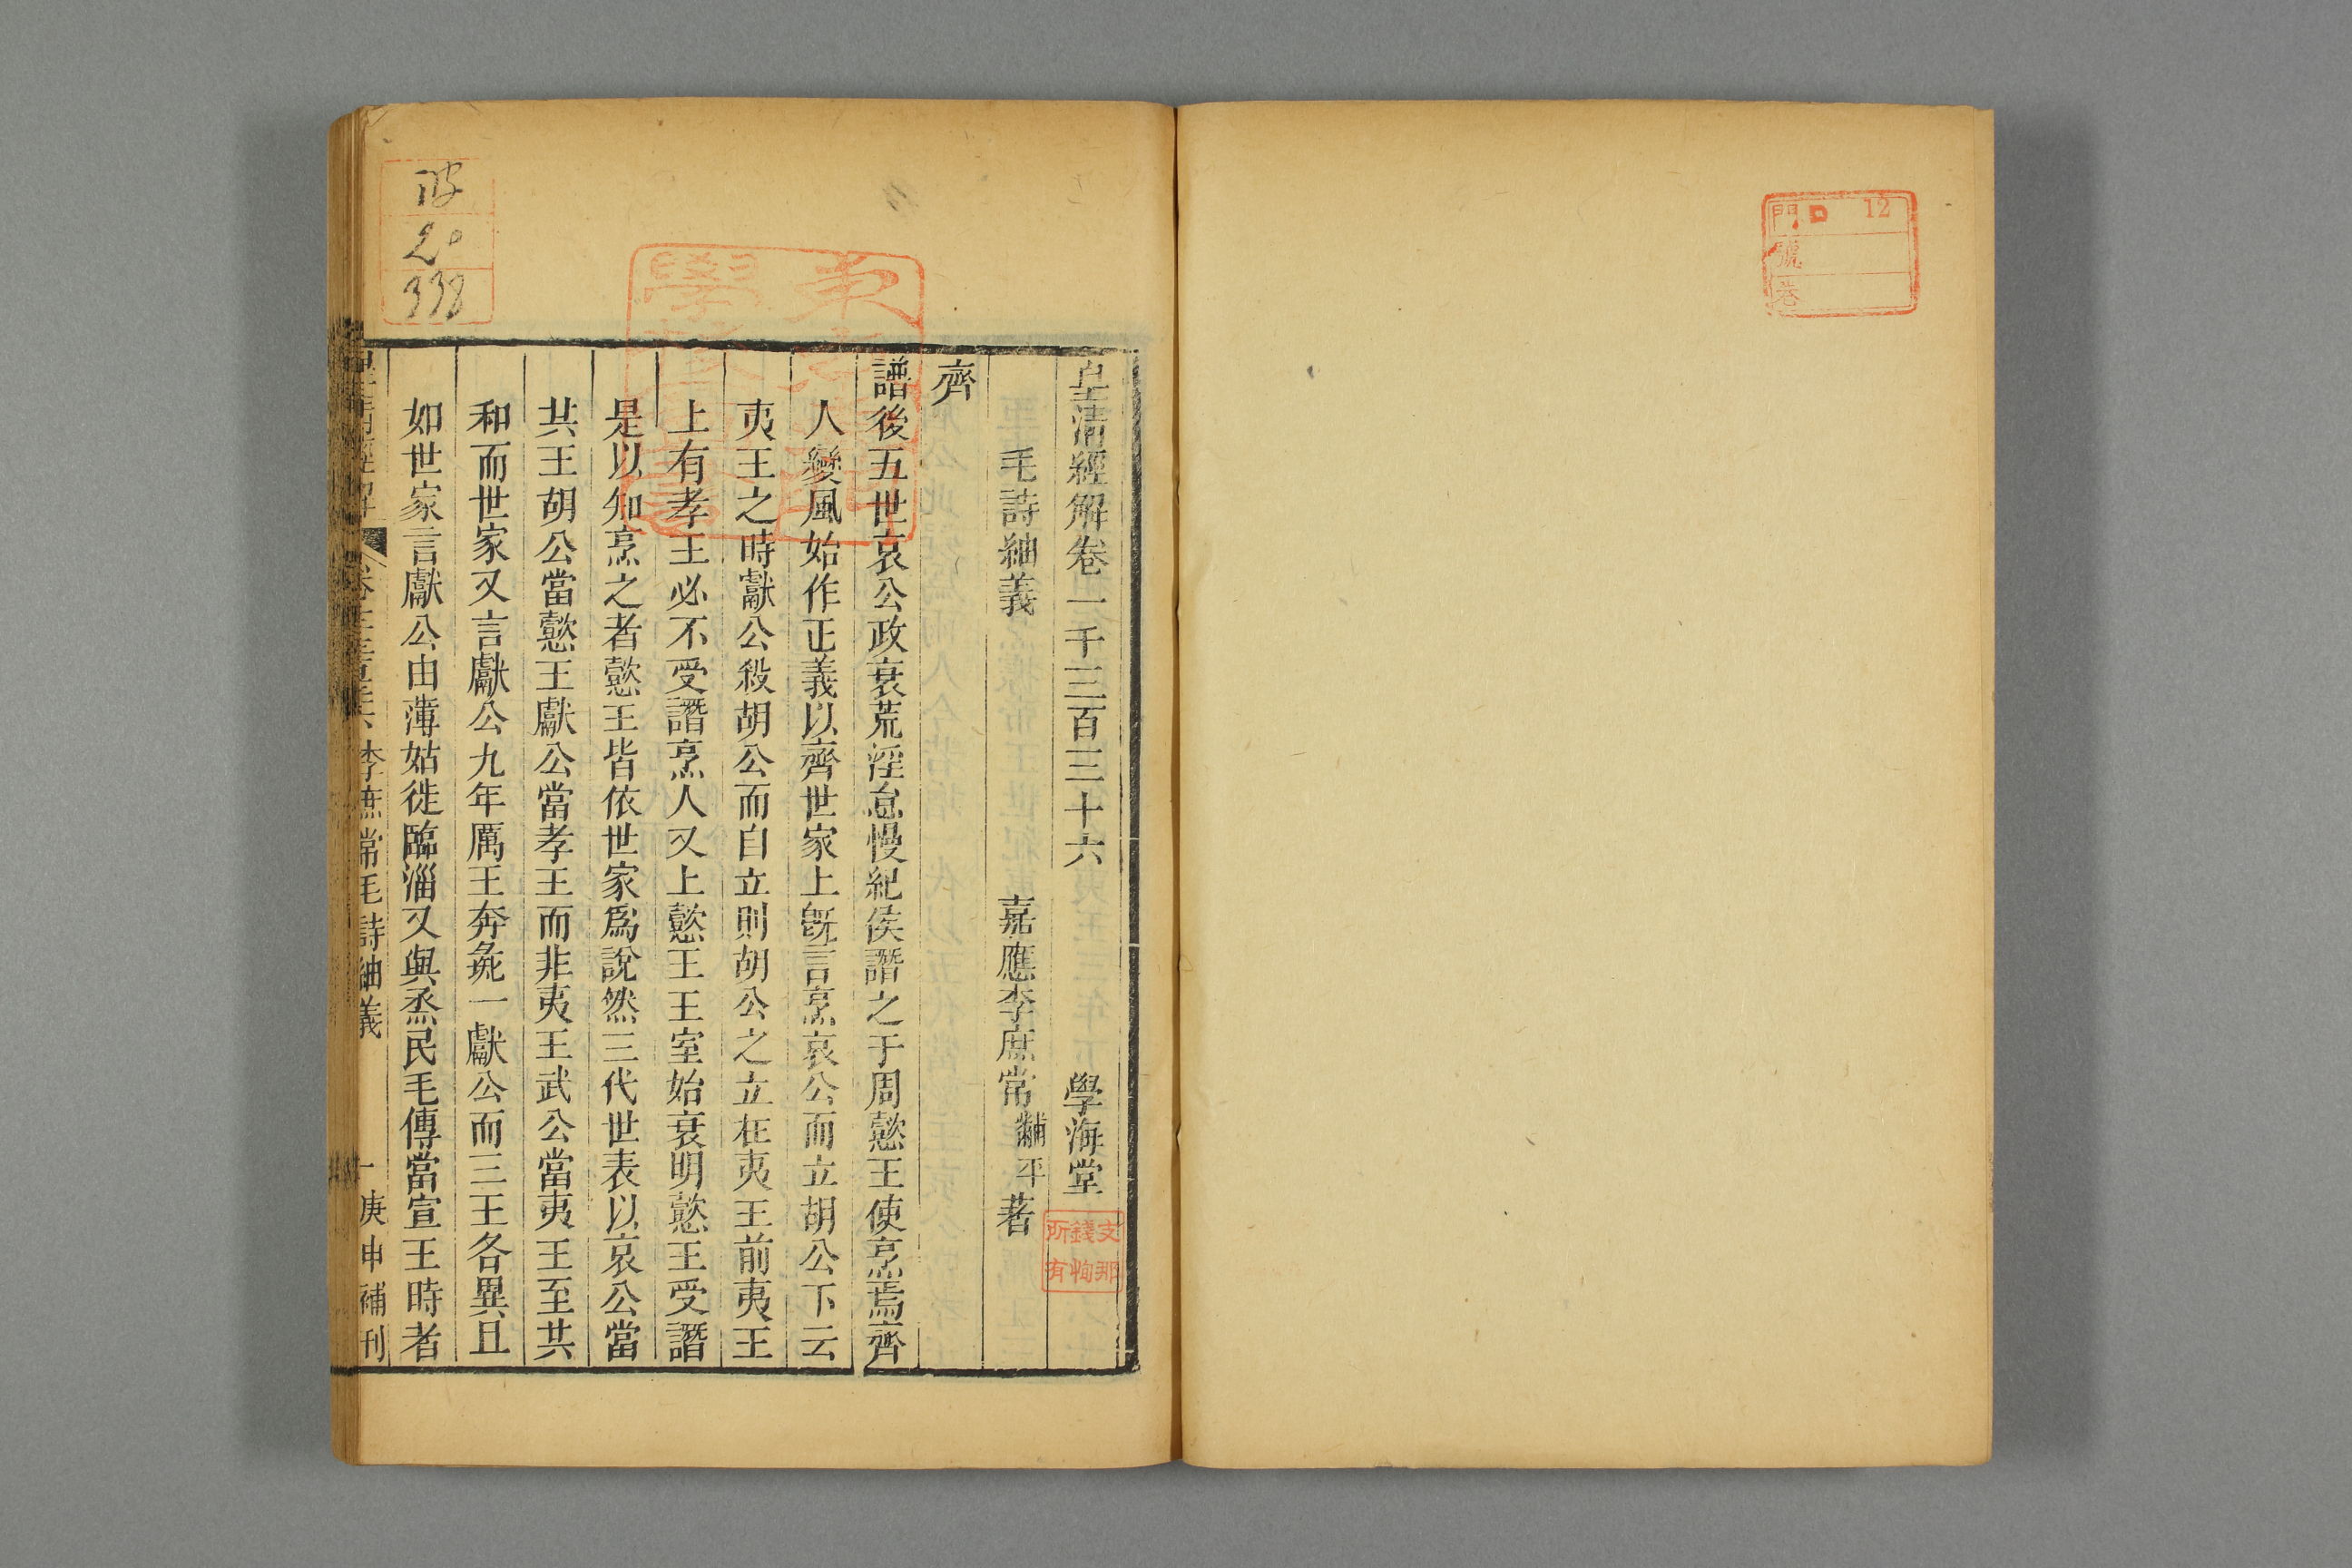 門 12
號
巷
皇清經解卷一千三百三十六 學海堂
毛詩紬義 嘉應李庶常黼平著
齊
譜後五世哀公政衰荒淫怠慢紀侯譖之于周懿王使烹焉齊
人變風始作正義以齊世家上旣言烹哀公而立胡公下云
夷王之時獻公殺胡公而自立則胡公之立在夷王前夷王
上有孝王必不受譖烹人又上懿王王室始衰明懿王受譖
是以知烹之者懿王皆依世家爲說然三代世表以哀公當
共王胡公當懿王獻公當孝王而非夷王武公當夷王至共
和而世家又言獻公九年厲王奔彘一獻公而三王各異且
如世家言獻公由薄姑徙臨淄又與烝民毛傳當宣王時者
皇清經解 李庶常毛詩紬義 一 庚申補刊
支那
錢恂
所有
20
338